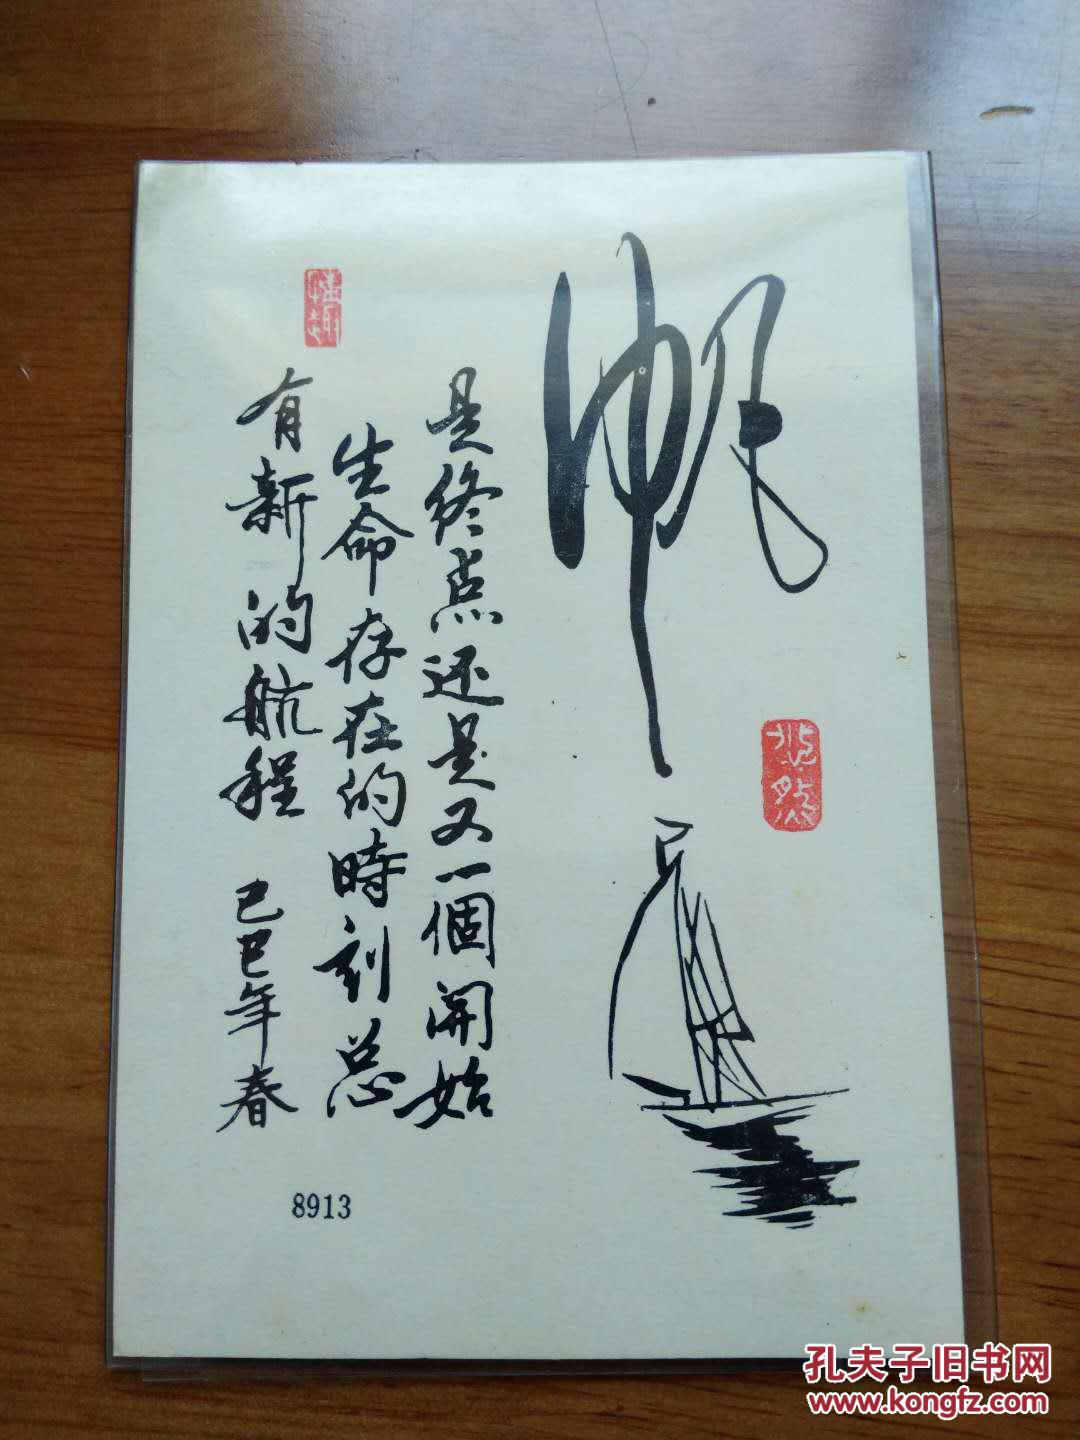 帆
是终点还是又一個開始
生命存在的時刻总
有新的航程 己巳年春
8913
孔夫子旧书网
www.kongfz.com